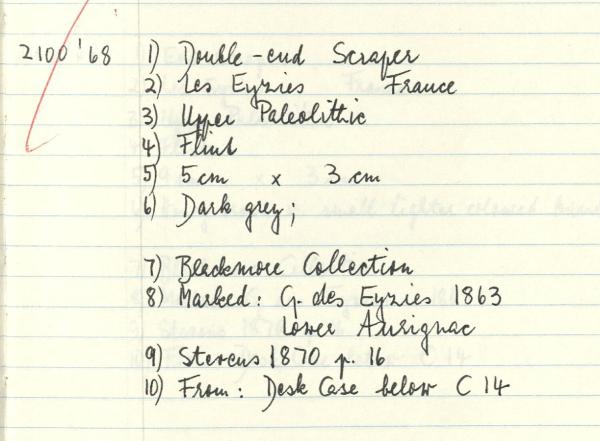 2100 '68 1) Double-end Scraper
2) Les Eyzies France
3) Upper Paleolithic
4) Flint
5) 5 cm x 3 cm
6) Dark grey;
7) Blackmore Collection
8) Marked: G. des Eyzies 1863
Lower Aurignac
9) Stevens 1870 p. 16
10) From: Desk Case below C 14